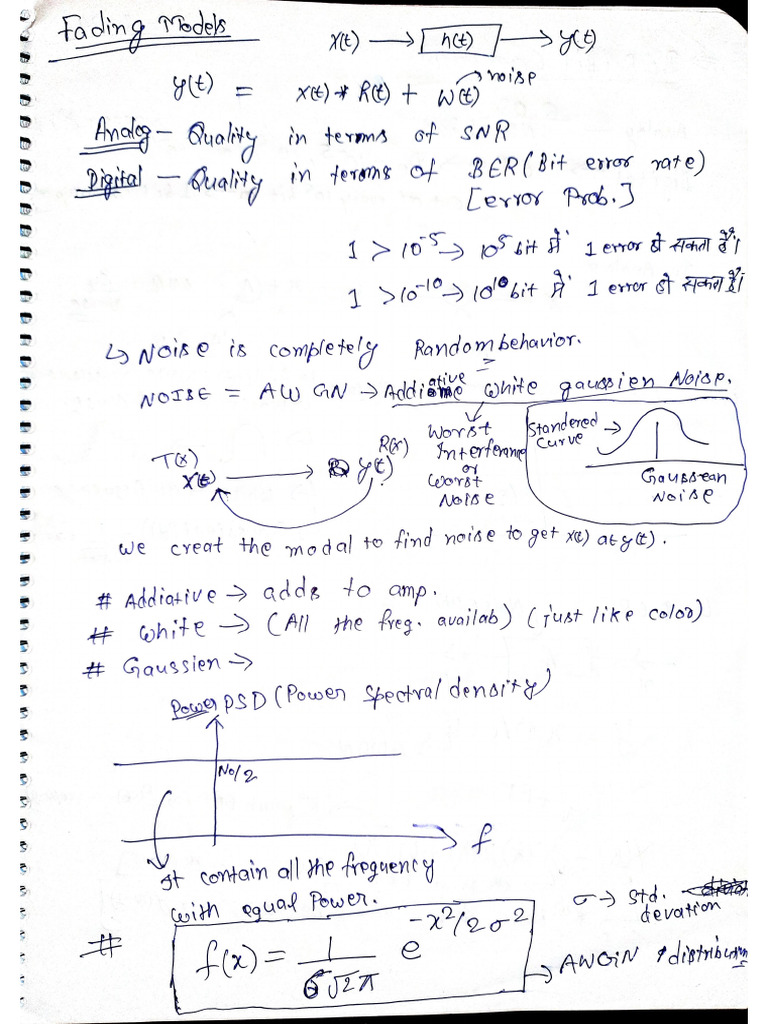 Fading Models
x(t) → h(t) → y(t)
y(t) = x(t) * R(t) + W(t) → noise
Analog - Quality in terms of SNR
Digital - Quality in terms of BER (Bit error rate)
[error Prob.]
1 > 10⁻⁵ → 10⁵ bit में 1 error हो सकता है।
1 > 10⁻¹⁰ → 10¹⁰ bit में 1 error हो सकता है।
↳ Noise is completely Random behavior.
NOISE = AWGN → Addiative white gaussien Noise.
Worst
Interference
or
Worst
Noise
Standered
Curve →
Gaussean
Noise
T(x) R(x)
x(t) → y(t)
we creat the modal to find noise to get x(t) at y(t).
# Addiative → adds to amp.
# White → (All the freq. availab) (just like color)
# Gaussien →
PSD (Power Spectral density)
No/2
f
It contain all the frequency
with equal Power.
σ → Std.
devation
# f(x) = 1/σ√2π e^-x²/2σ²
→ AWGN distribution